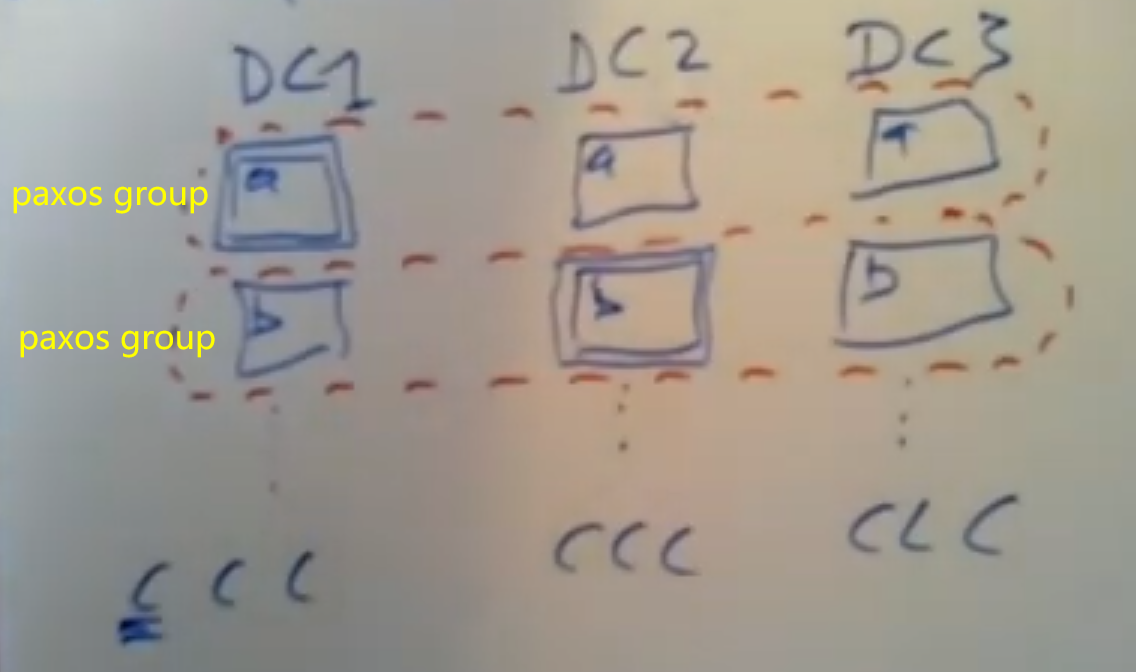 DC1 DC2 DC3
paxos group a a a
paxos group b b b
C C C C C C C C C